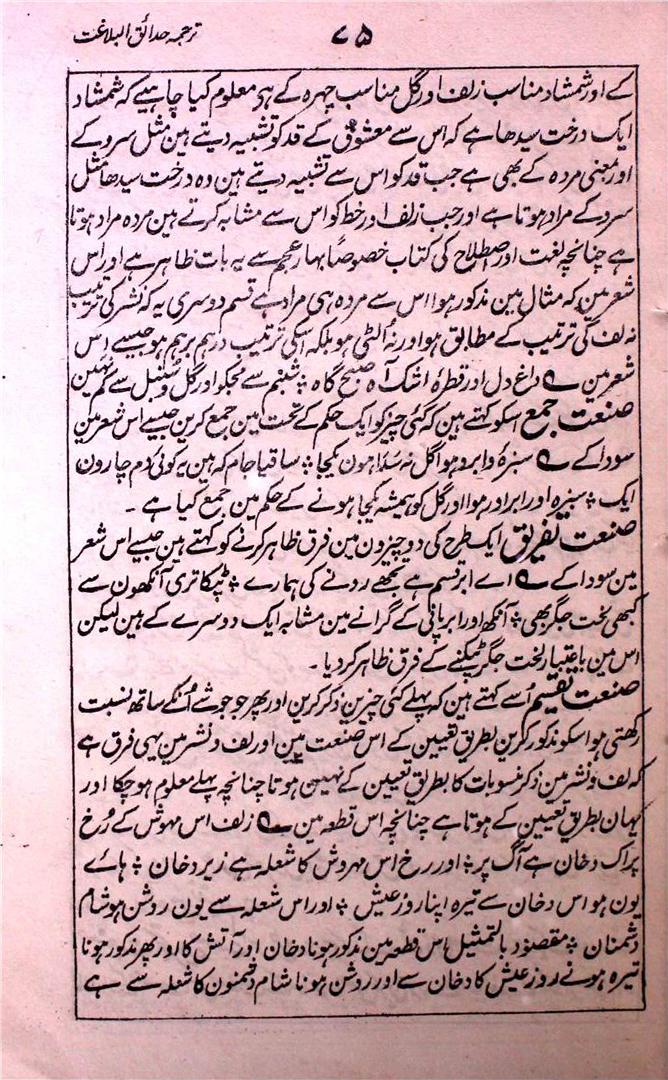 ترجمہ حدائق البلاغت
۷۵
کے اور شمشاد مناسب زلف اور گل مناسب چہرہ کے ہو معلوم کیا چاہیے کہ شمشاد
ایک درخت سیدھا ہے کہ اس سے معشوق کے قد کو تشبیہ دیتے ہین مثل سرو کے
اور معنی مردہ کے بھی ہے جب قد کو اس سے تشبیہ دیتے ہین وہ درخت سیدھا مثل
سرو کے مراد ہوتا ہے اور جب زلف اور خط کو اس سے مشابہ کرتے ہین مردہ مراد ہوتا
ہے چنانچہ لغت اور اصطلاح کی کتاب خصوصاً بہار عجم سے یہ بات ظاہر ہے اور اس
شعر مین کہ مثال مین مذکور ہوا اس سے مردہ ہی مراد ہے قسم دوسری یہ کہ نشر کی ترتیب
نہ لف کی ترتیب کے مطابق ہو اور نہ الٹی ہو بلکہ اسکی ترتیب درہم برہم ہو جیسے اس
شعر مین ؎ داغ دل اور قطرۂ اشک آہ صبح گاہ ؛ شبنم سے مجکو اور گل و سنبل سے کم نہین
صنعت جمع اسکو کہتے ہین کہ کئی چیز کو ایک حکم کے تحت مین جمع کرین جیسے اس شعر مین
سودا کے ؎ سبزہ و ابر و ہوا گل نہ سدا ہون یکجا ؛ ساقیا جام کہ ہین یہ کوئی دم چارون
ایک ؛ سبزہ اور ابر اور ہوا اور گل کو ہمیشہ یکجا ہونے کے حکم مین جمع کیا ہے ۔
صنعت تفریق ایک طرح کی دو چیزون مین فرق ظاہر کرنے کو کہتے ہین جیسے اس شعر
مین سودا کے ؎ اے ابر قسم ہے تجھے رونے کی ہمارے ؛ ٹپکا تری آنکھون سے
کبھی لخت جگر بھی ؛ آنکھ اور ابر پانی کے گرانے مین مشابہ ایک دوسرے کے ہین لیکن
اس مین باعتبار لخت جگر ٹپکنے کے فرق ظاہر کر دیا ۔
صنعت تقسیم اُسے کہتے ہین کہ پہلے کئی چیزین ذکر کرین اور پھر جو جو شے اُنکے ساتھ نسبت
رکھتی ہو اسکو مذکور کرین بطریق تعیین کے اس صنعت مین اور لف و نشر مین یہی فرق ہے
کہ لف و نشر مین ذکر منسوبات کا بطریق تعیین کے نہین ہوتا چنانچہ پہلے معلوم ہو چکا اور
یہان بطریق تعیین کے ہوتا ہے چنانچہ اس قطعہ مین ؎ زلف اس مہوش کے رُخ
پر اک دخان ہے آگ پر ؛ اور رخ اس مہوش کا شعلہ ہے زیر دخان ؛ ہائے
یون ہو اس دخان سے تیرہ اپنا روز عیش ؛ اور اس شعلہ سے یون روشن ہو شام
دشمنان ؛ مقصود بالتمثیل اس قطعہ مین مذکور ہونا دخان اور آتش کا اور پھر مذکور ہونا
تیرہ ہونے روز عیش کا دخان سے اور روشن ہونا شام دشمنون کا شعلہ سے ہے